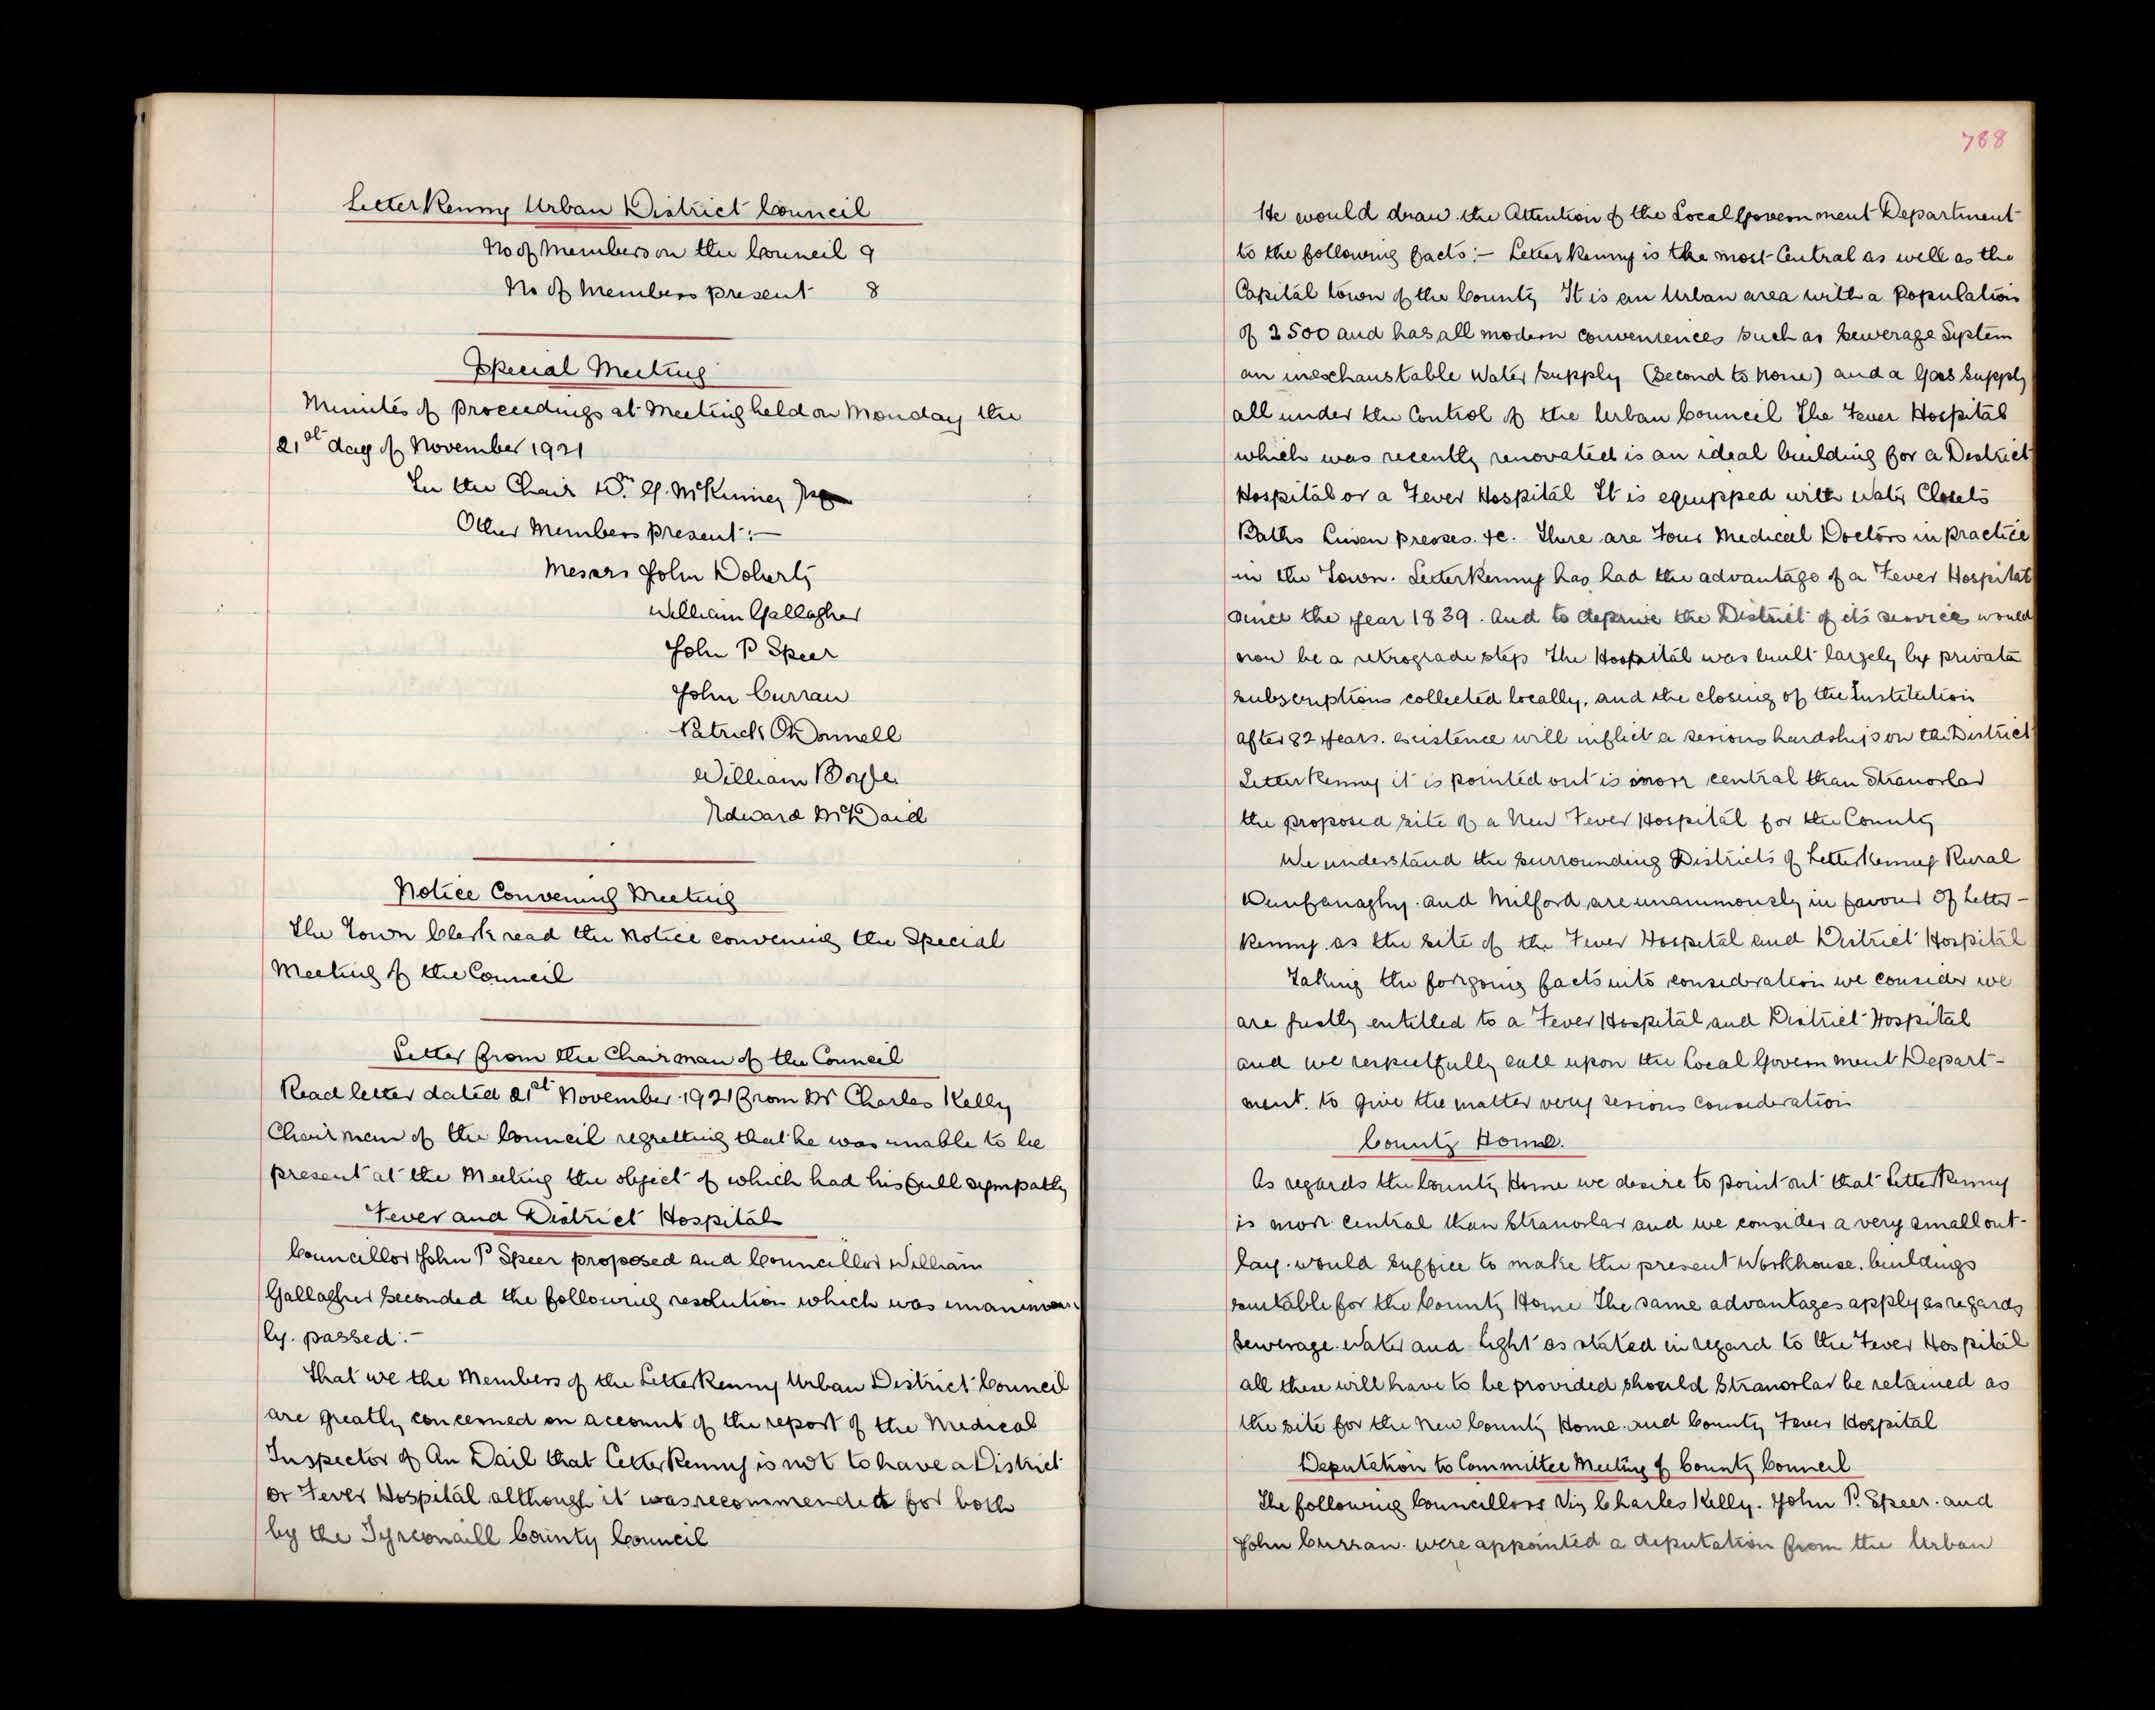 LetterKenny Urban District Council
No of Members on the Council 9
No of Members present 8
Special Meeting
Minutes of proceedings at Meeting held on Monday the
21st day of November 1921
In the Chair Dr. McKinney
Other Members present:-
Messrs John Doherty
William Gallagher
John P Speer
John Curran
Patrick O'Donnell
William Boyle
Edward McDaid
Notice Convening Meeting
The Town Clerk read the Notice convening the Special
Meeting of the Council
Letter from the Chairman of the Council
Read letter dated 21st November 1921 from Mr Charles Kelly
Chairman of the Council regretting that he was unable to be
present at the Meeting the object of which had his full sympathy
Fever and District Hospital
Councillor John P Speer proposed and Councillor William
Gallagher seconded the following resolution which was unanimous-
ly passed:-
That we the Members of the LetterKenny Urban District Council
are greatly concerned on account of the report of the Medical
Inspector of An Dail that LetterKenny is not to have a District
or Fever Hospital although it was recommended for both
by the Tyrconaill County Council
788
We would draw the Attention of the Local Government Department
to the following facts:- LetterKenny is the most Central as well as the
Capital town of the County It is an Urban area with a Population
of 2500 and has all modern conveniences such as Sewerage System
an inexhaustable Water supply (second to none) and a Gas Supply
all under the Control of the Urban Council The Fever Hospital
which was recently renovated is an ideal building for a District
Hospital or a Fever Hospital It is equipped with Water Closets
Baths Linen presses. &c. There are Four Medical Doctors in practice
in the Town. LetterKenny has had the advantage of a Fever Hospital
since the year 1839. And to deprive the District of its services would
now be a retrograde step The Hospital was built largely by private
subscriptions collected locally, and the closing of the Institution
after 82 years. existence will inflict a serious hardship on the District
LetterKenny it is pointed out is more central than Stranorlar
the proposed site of a New Fever Hospital for the County
We understand the surrounding Districts of Letterkenny Rural
Dunfanaghy. and Milford are unanimously in favour of Letter-
Kenny. as the site of the Fever Hospital and District Hospital
Taking the forgoing facts into consideration we consider we
are justly entitled to a Fever Hospital and District Hospital
and we respectfully call upon the Local Government Depart-
ment. to give the matter very serious consideration
County Home.
As regards the County Home we desire to point out that LetterKenny
is more central than Stranorlar and we consider a very small out-
lay. would suffice to make the present Workhouse. buildings
suitable for the County Home The same advantages apply as regards
Sewerage. Water and light as stated in regard to the Fever Hospital
all these will have to be provided should Stranorlar be retained as
the site for the New County Home. and County Fever Hospital
Deputation to Committee Meeting of County Council
The following Councillors Viz Charles Kelly. John P. Speer. and
John Curran. were appointed a deputation from the Urban